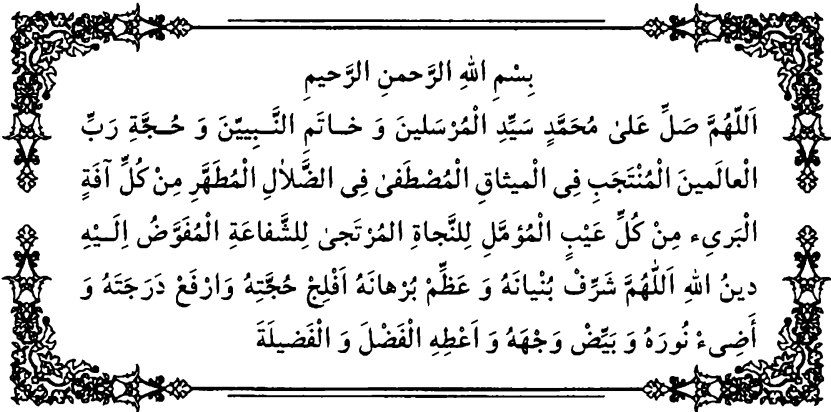 بِسْمِ اللهِ الرَّحمنِ الرَّحيمِ
اَللّهُمَّ صَلِّ عَلىٰ مُحَمَّدٍ سَيِّدِ الْمُرْسَلينَ وَ خـاتَمِ النَّـبِيّينَ وَ حُـجَّةِ رَبِّ
الْعالَمينَ الْمُنْتَجَبِ فِى الْميثاقِ الْمُصْطَفىٰ فِى الضَّلاٰلِ الْمُطَهَّرِ مِنْ كُلِّ آفَةٍ
الْبَرىِء مِنْ كُلِّ عَيْبٍ الْمُؤمَّلِ لِلنَّجاةِ المُرْتَجىٰ لِلشَّفاعَةِ الْمُفَوَّضُ اِلَـيْهِ
دينُ اللهِ اَللّٰهُمَّ شَرِّفْ بُنْيانَهُ وَ عَظِّمْ بُرْهانَهُ اَفْلِجْ حُجَّتِهُ وَارْفَعْ دَرَجَتَهُ وَ
أَضِىءْ نُورَهُ وَ بَيِّضْ وَجْهَهُ وَ اَعْطِهِ الْفَضْلَ وَ الْفَضيلَةَ